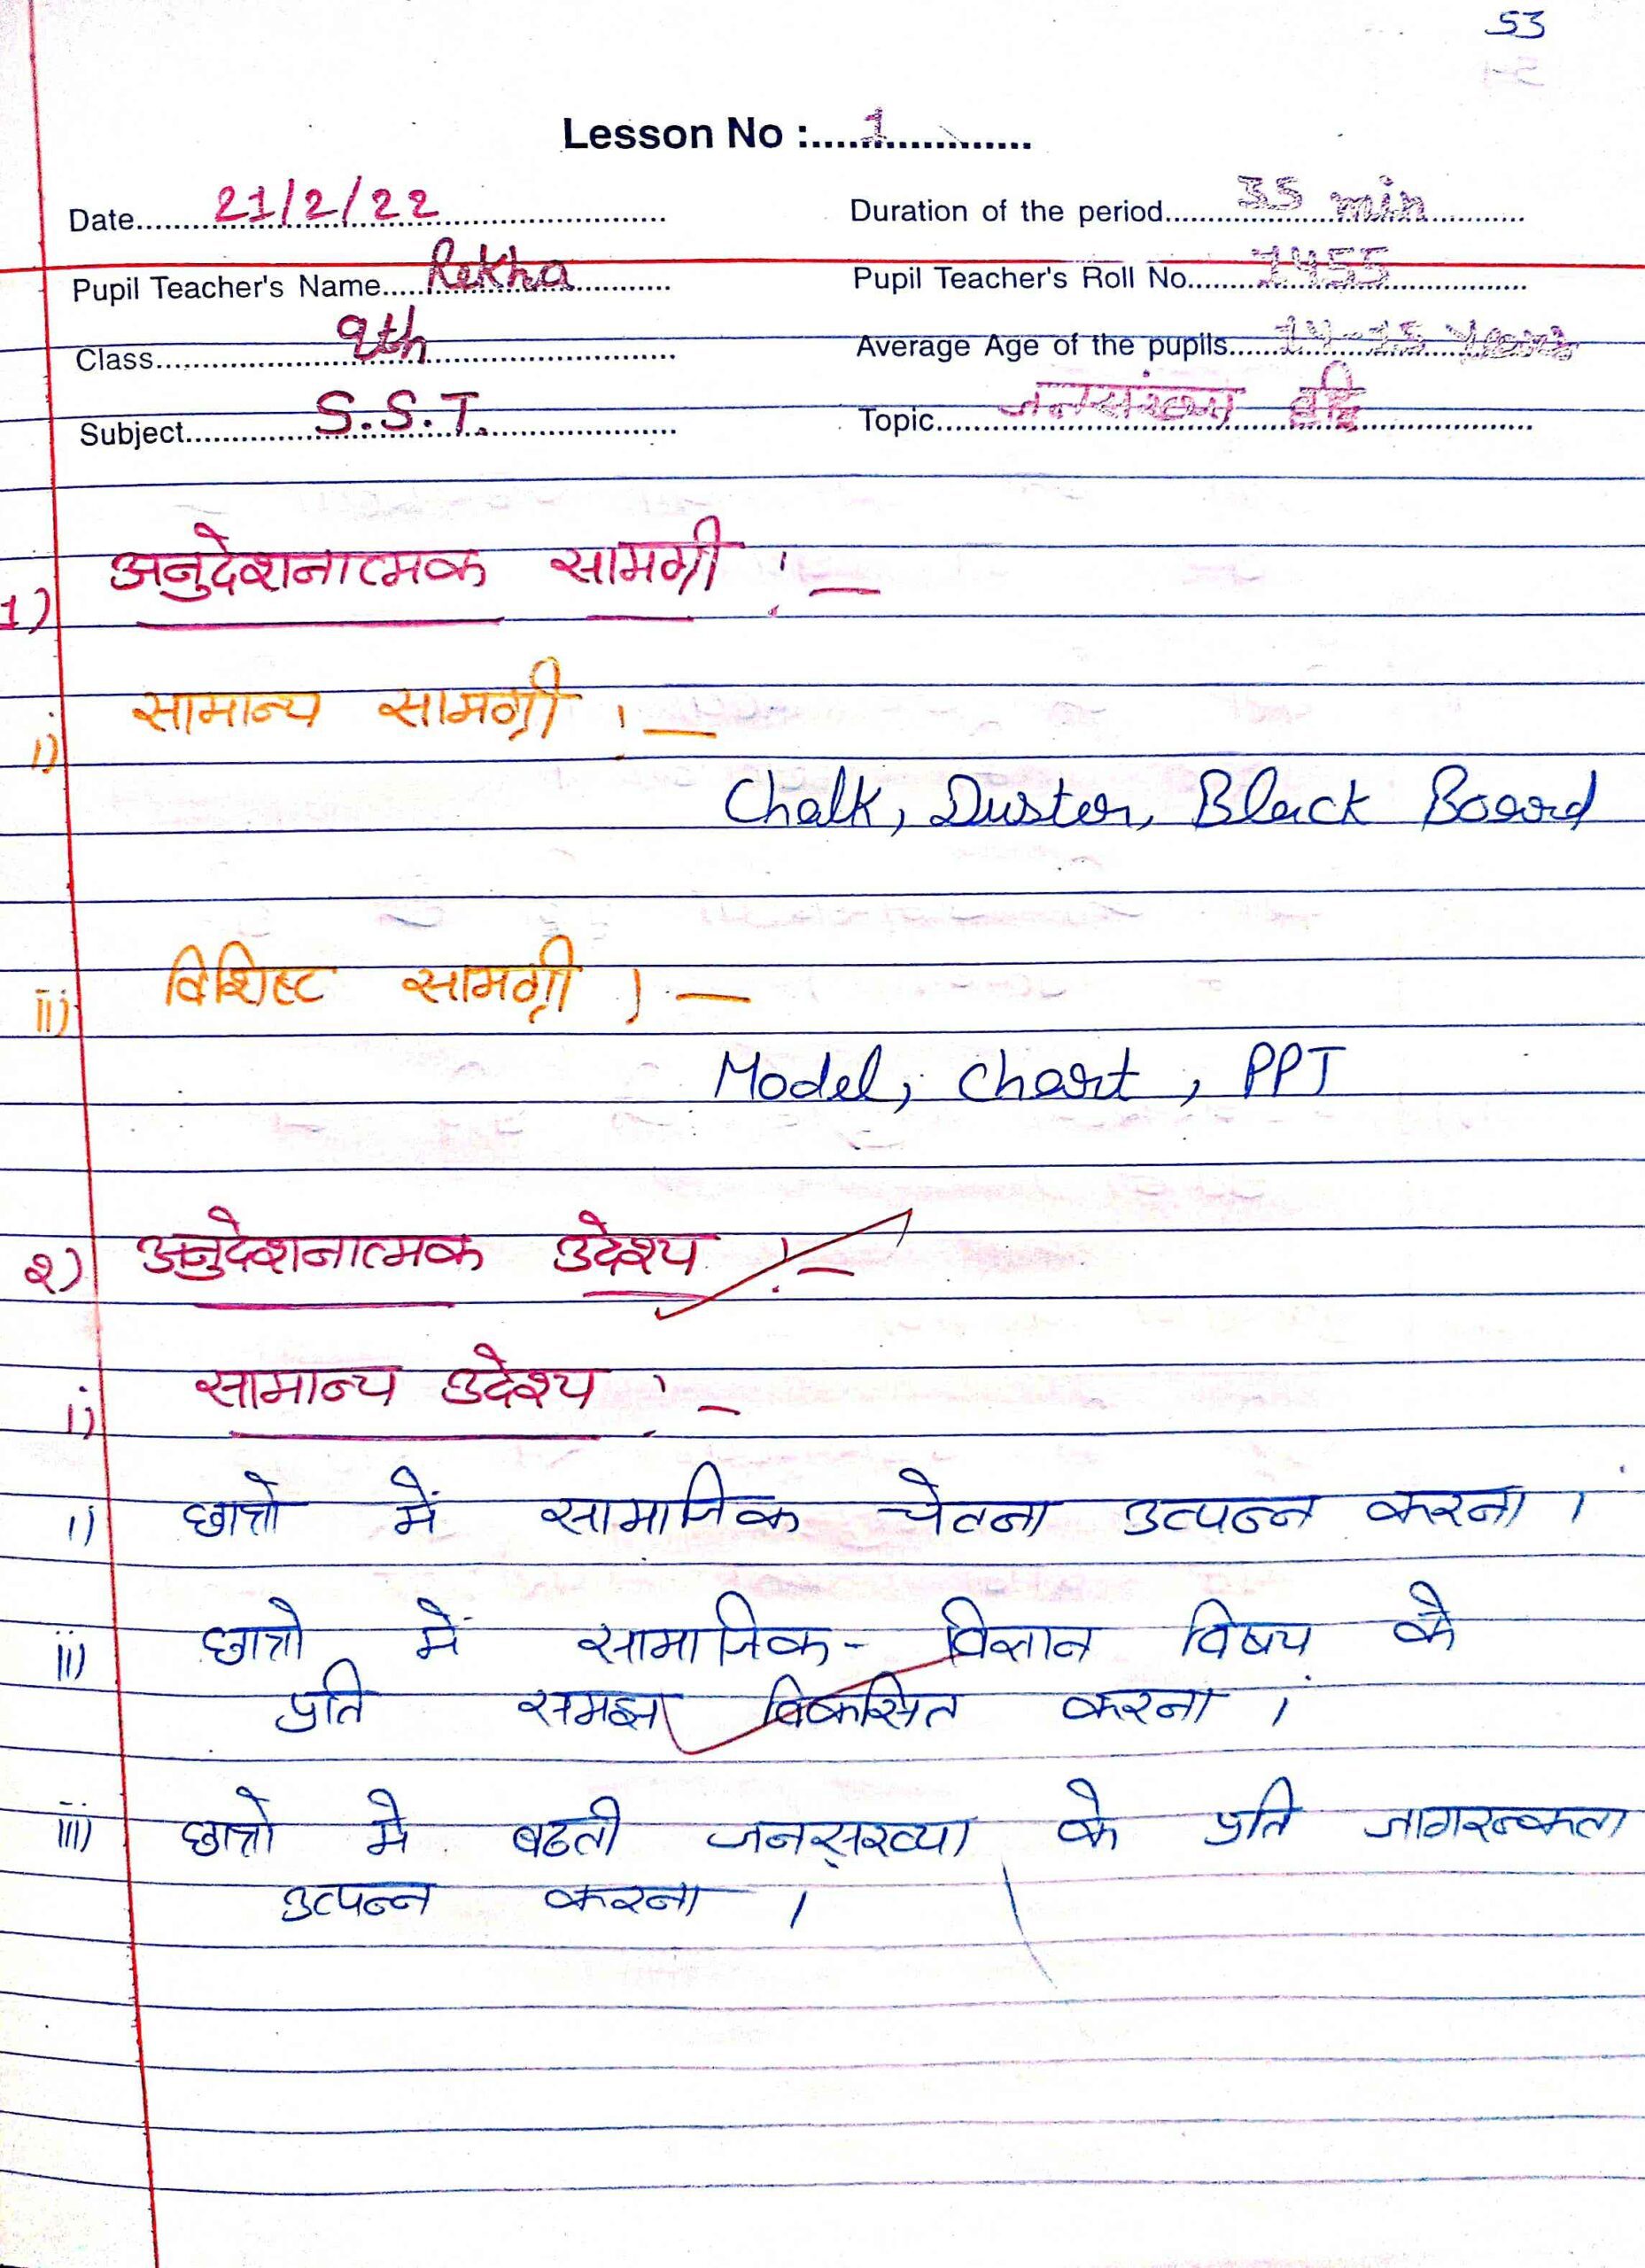 53
Lesson No :.....1..................
Date.....21/2/22..... Duration of the period.....35 min.....
Pupil Teacher's Name.....Rekha..... Pupil Teacher's Roll No.....1455.....
Class.....9th..... Average Age of the pupils.....14-15 years.....
Subject.....S.S.T...... Topic.....जनसंख्या वृद्धि.....
1) अनुदेशनात्मक सामग्री :—
i) सामान्य सामग्री :—
Chalk, Duster, Black Board
ii) विशिष्ट सामग्री :—
Model, Chart, PPT
२) अनुदेशनात्मक उदेश्य :—
i) सामान्य उदेश्य :—
i) छात्रो में सामाजिक चेतना उत्पन्न करना ।
ii) छात्रो में सामाजिक - विज्ञान विषय के
प्रति समझ विकसित करना ।
iii) छात्रो मे बढती जनसंख्या के प्रति जागरूकता
उत्पन्न करना ।